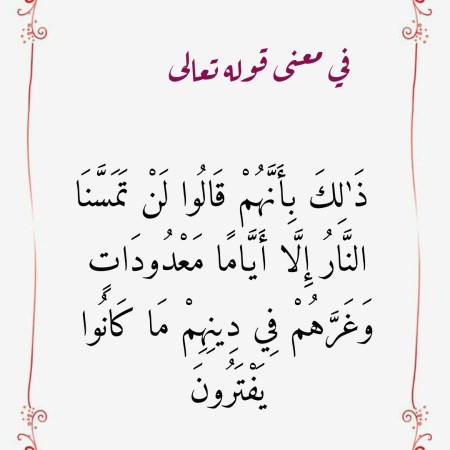 في معنى قوله تعالى
ذَٰلِكَ بِأَنَّهُمْ قَالُوا لَنْ تَمَسَّنَا
النَّارُ إِلَّا أَيَّامًا مَعْدُودَاتٍ
وَغَرَّهُمْ فِي دِينِهِمْ مَا كَانُوا
يَفْتَرُونَ